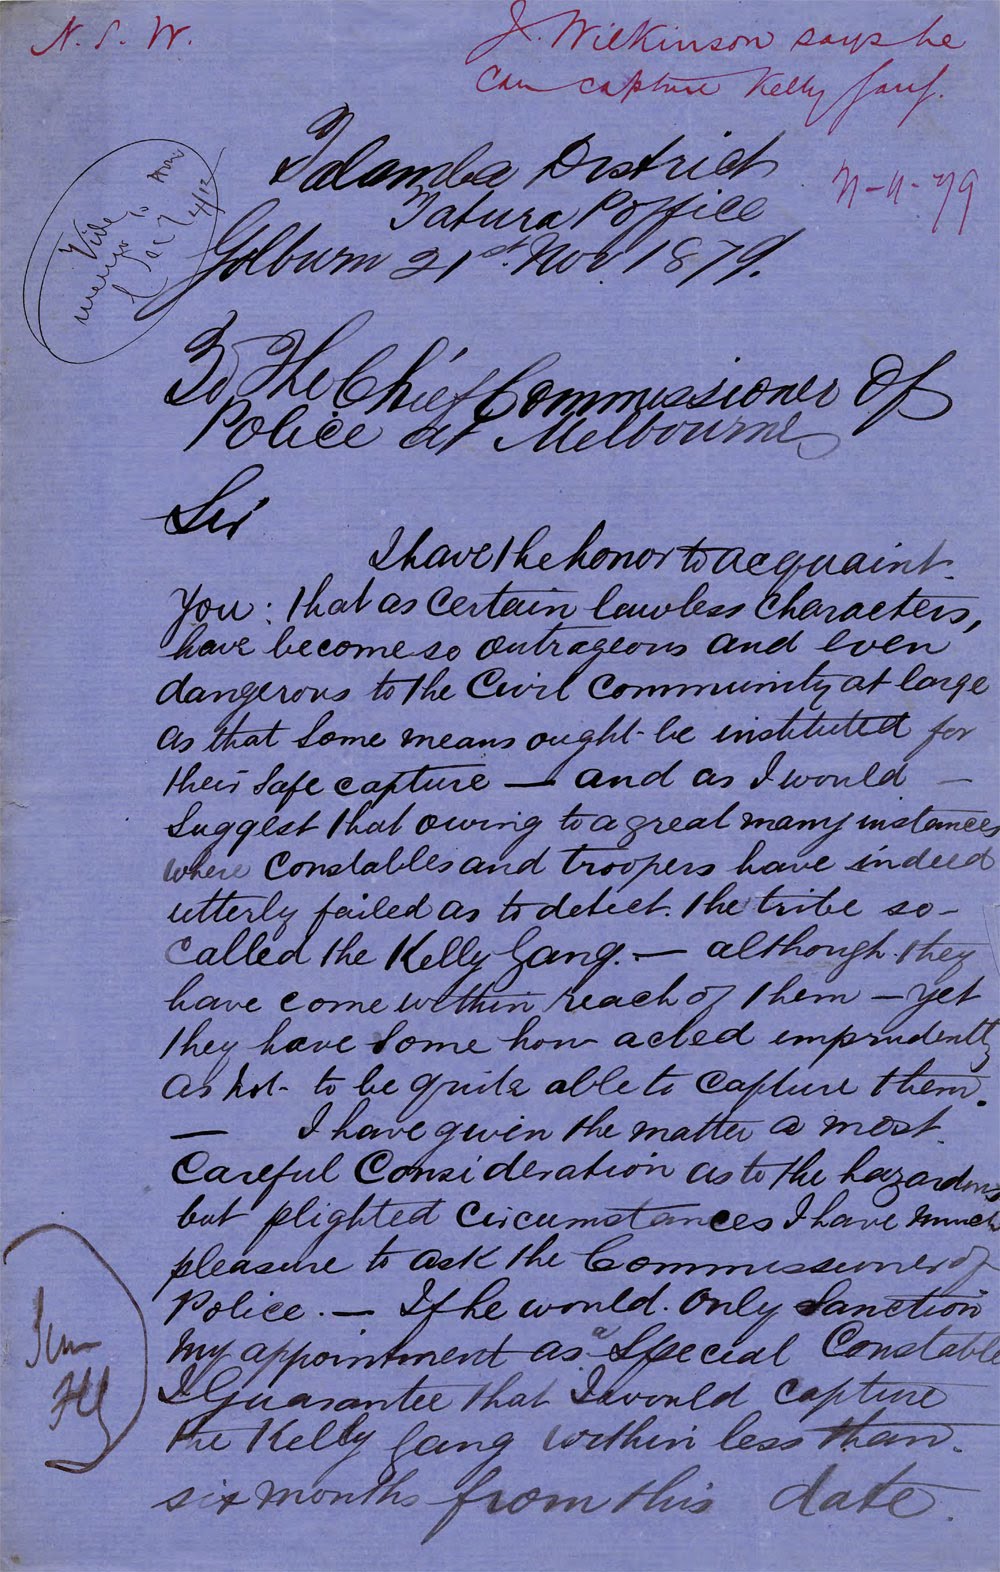 N. S. W.
J. Wilkinson says he
can capture Kelly Gang.
Vide
Toolamba District
Tatura P office
-11-79
Golburn 21st. Nov. 1879.
To The Chief Commissioner Of
Police at Melbourne
Sir
I have the honor to acquaint
You: that as certain lawless Characters,
have become so outrageous and even
dangerous to the Civil Community at large
as that Some means ought be instituted for
their Safe capture — and as I would —
Suggest that owing to a great many instances
where Constables and troopers have indeed
utterly failed as to detect. the tribe so-
Called the Kelly Gang. — although they
have come within reach of them — yet
they have Some how acted imprudently
as not to be quite able to Capture them.
— I have given the matter a most
Careful Consideration as to the hazardous
but plighted Circumstances I have much
pleasure to ask the Commissioner of
Police. — If he would. Only Sanction
My appointment as a Special Constable
I Guarantee that I would Capture
the Kelly Gang within less than
six months from this date.